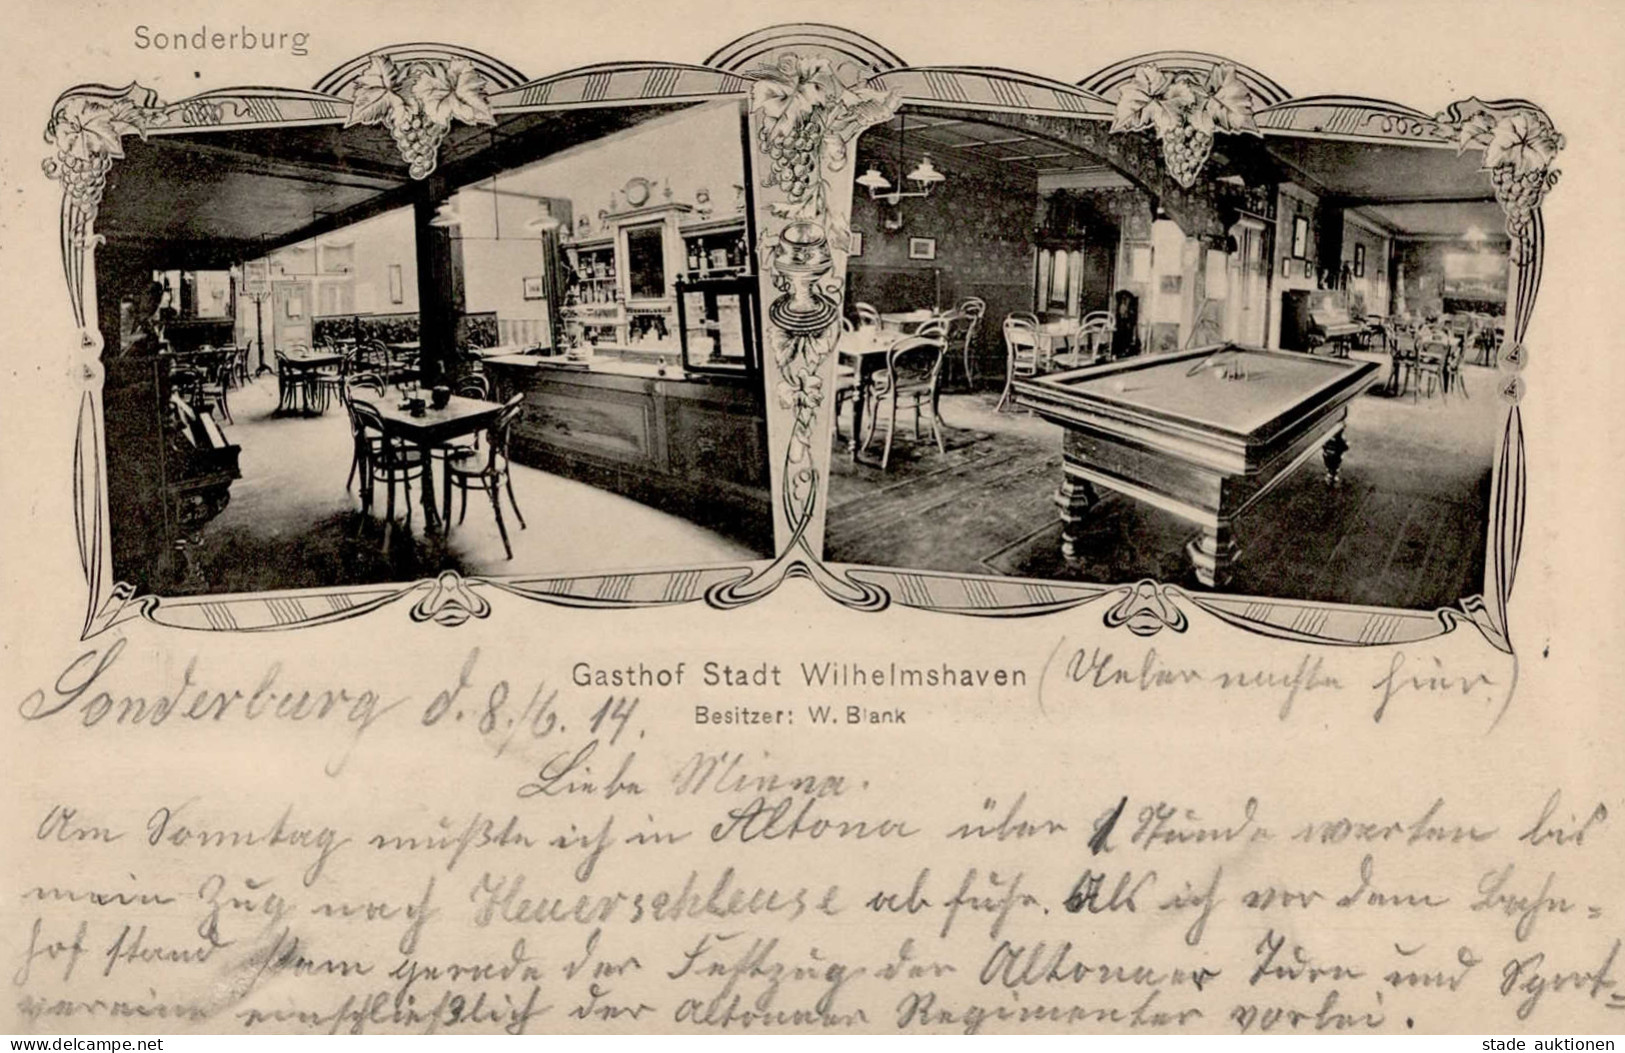 Sonderburg
Gasthof Stadt Wilhelmshaven (Uebernachte hier.)
Besitzer: W. Blank
Sonderburg d. 8./6. 14.
Liebe Minna.
Am Sonntag mußte ich in Altona über 1 Stunde warten bis
mein Zug nach abfuhr. Als ich vor dem Bahn=
hof stand kam gerade der Festzug der Altonaer Turn und Sport=
vereine einschließlich der Altonaer Regimenter vorbei.
delcampe.net
stade auktionen